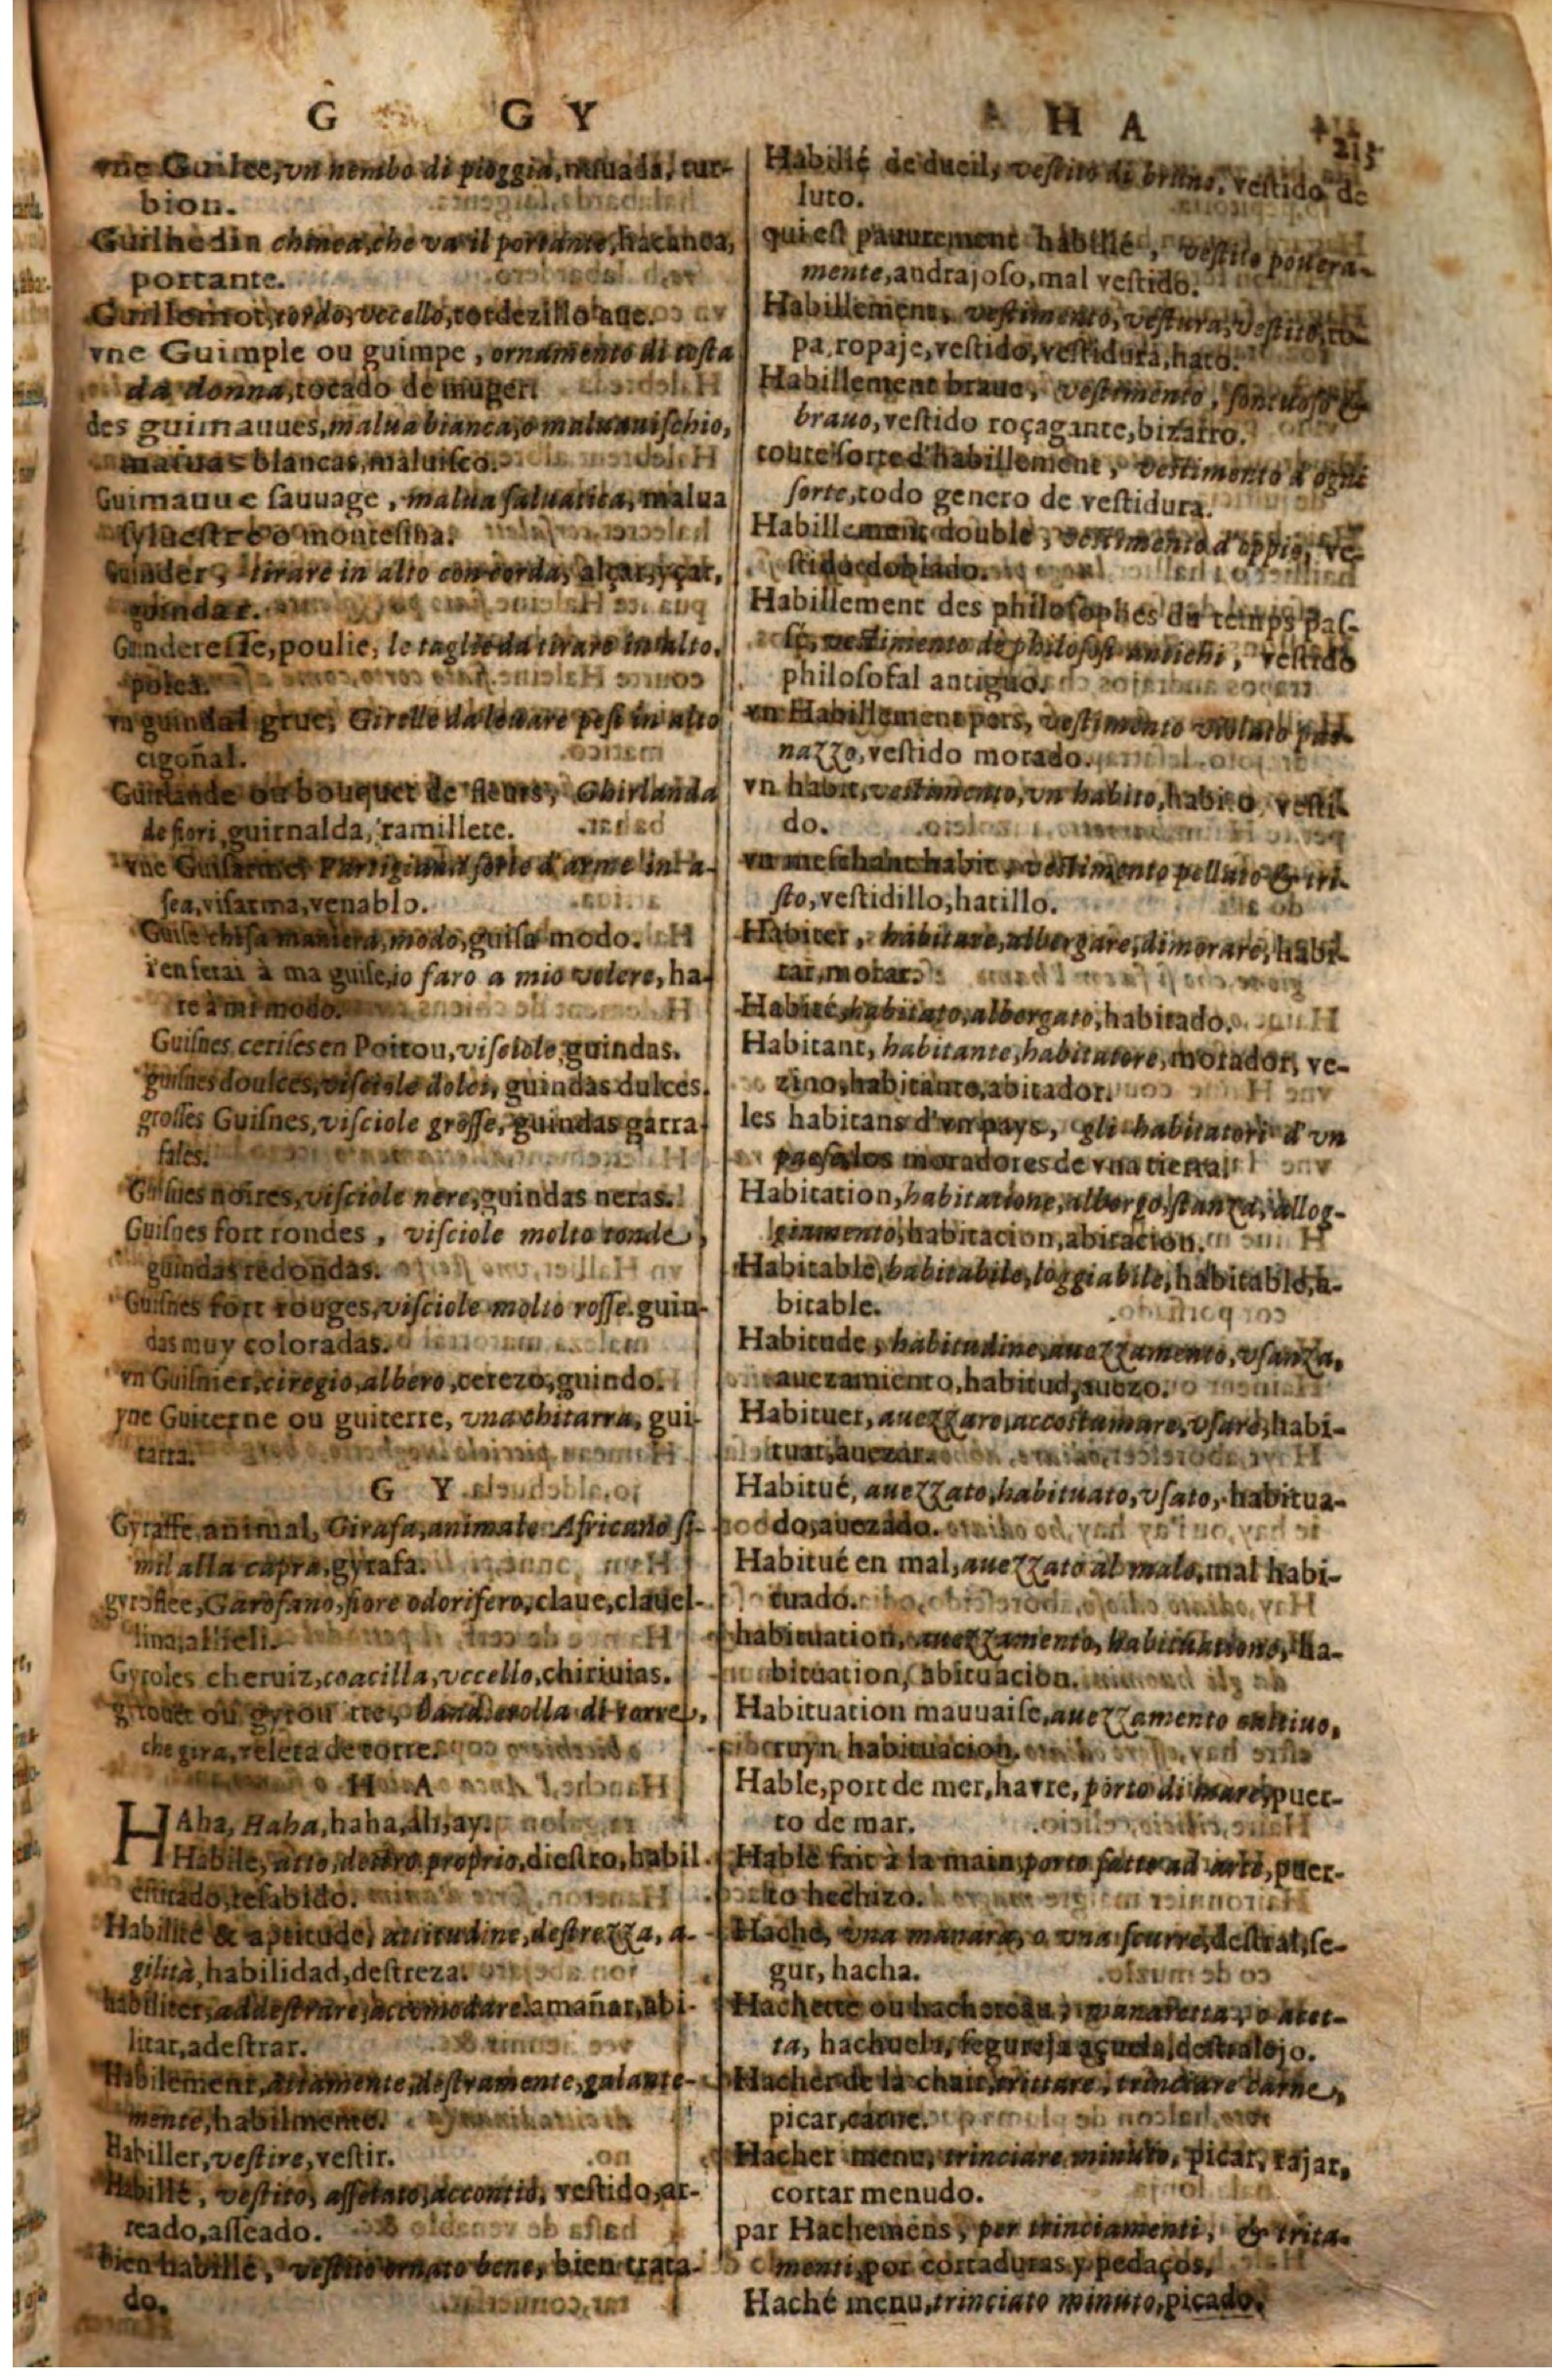 G GY
HA
215
vne Guilee, vn nembo di pioggia, ruuiada, tur-
bion.
Guilhedin chinea, che va il portante, hacanea,
portante.
Guillemot, tordo, vccello, tordezillo aue.
vne Guimple ou guimpe, ornamento di testa
da donna, tocado de muger.
des guimauues, malua bianca, o maluauischio,
maluas blancas, maluisco.
Guimauue sauuage, malua saluatica, malua
syluestre o montesina.
Guinder, tirare in alto con corda, alçar, yçar,
guindar.
Guinderesse, poulie, le taglie da tirare in alto.
polea.
vn guindal grue, Girelle da leuare pesi in alto
cigoñal.
Guirlande ou bouquet de fleurs, Ghirlanda
de fiori, guirnalda, ramillete.
vne Guisarme, Partigiana sorte d'arme in ha-
sea, visarma, venablo.
Guise, maniera, modo, guisa modo.
i'en ferai à ma guise, io faro a mio volere, ha-
re à mi modo.
Guisnes cerises en Poitou, visciole, guindas.
guisnes doulces, visciole dolci, guindas dulces.
grosses Guisnes, visciole grosse, guindas garra-
fales.
Guisnes noires, visciole nere, guindas neras.
Guisnes fort rondes, visciole molto tonde,
guindas redondas.
Guisnes fort rouges, visciole molto rosse. guin-
das muy coloradas.
vn Guisnier, ciregio, albero, cerezo, guindo.
vne Guiterne ou guiterre, vna chitarra, gui-
tarra.
G Y
Gyraffe, animal, Girafa, animale Africano si-
mil alla capra, gyrafa.
gyroflee, Garofano, fiore odorifero, claue, clauel-
lina, alheli.
Gyroles cheruiz, coacilla, vccello, chiriuias.
girouet ou gyrouette, banderolla di torre,
che gira, veleta de torre.
H A
HAha, Haha, haha, ah, ay.
Habile, atto, destro, proprio, diestro, habil
estirado, resabido.
Habilité & aptitude, attitudine, destrezza, a-
gilità, habilidad, destreza.
habiliter, addestrare, accomodare. amañar, abi-
litar, adestrar.
Habilement, attamente, destramente, galante-
mente, habilmente.
Habiller, vestire, vestir.
Habillé, vestito, assettato, accontio, vestido, ar-
reado, asseado.
bien habillé, vestito ornato bene, bien trata-
do.
Habillé de dueil, vestito di bruno, vestido de
luto.
qui est pauurement habillé, vestito pouera-
mente, andrajoso, mal vestido.
Habillement, vestimento, vestura, vestito, ro-
pa, ropaje, vestido, vestidura, hato.
Habillement braue, vestimento, sontuoso &
brauo, vestido roçagante, bizarro.
toute sorte d'habillement, vestimento d'ogni
sorte, todo genero de vestidura.
Habillement double, vestimento doppio, ve-
stido doblado.
Habillement des philosophes du temps pas-
sé, vestimento de philosofi antichi, vestido
philosofal antiguo.
vn Habillement pers, vestimento violato pao-
nazzo, vestido morado.
vn habit, vestimento, vn habito, habito, vesti-
do.
vn meschant habit, vestimento pelluto & tri-
sto, vestidillo, hatillo.
Habiter, habitare, albergare, dimorare, habi-
tar, morar.
Habité, habitato, albergato, habitado.
Habitant, habitante, habitatore, morador, ve-
zino, habitante, abitador.
les habitans d'vn pays, gli habitatori d'vn
paese, los moradores de vna tierra.
Habitation, habitatione, albergo, stanza, allog-
giamento, habitacion, abitacion.
Habitable, habitabile, loggiabile, habitable, a-
bitable.
Habitude, habitudine, auezzamento, vsanza,
auezamiento, habitud, auezo.
Habituer, auezzare, accostumare, vsare, habi-
tuar, auezar.
Habitué, auezzato, habituato, vsato, habitua-
do, auezado.
Habitué en mal, auezzato al male, mal habi-
tuado.
habituation, auezzamento, habituatione, ha-
bituation, abituacion.
Habituation mauuaise, auezzamento cattiuo,
ruyn habituacion.
Hable, port de mer, havre, porto di mare, puer-
to de mar.
Hable fait à la main, porto fatto ad arte, puer-
to hechizo.
Hache, vna manara, o vna scurre, destral, se-
gur, hacha.
Hachette ou hachereau, manaretta, o acet-
ta, hachuela, segureja açuela, destralejo.
Hacher de la chair, tritare, trinciare carne,
picar, carne.
Hacher menu, trinciare minuto, picar, tajar,
cortar menudo.
par Hachemens, per trinciamenti, & trita-
menti, por cortaduras y pedaços.
Haché menu, trinciato minuto, picado.